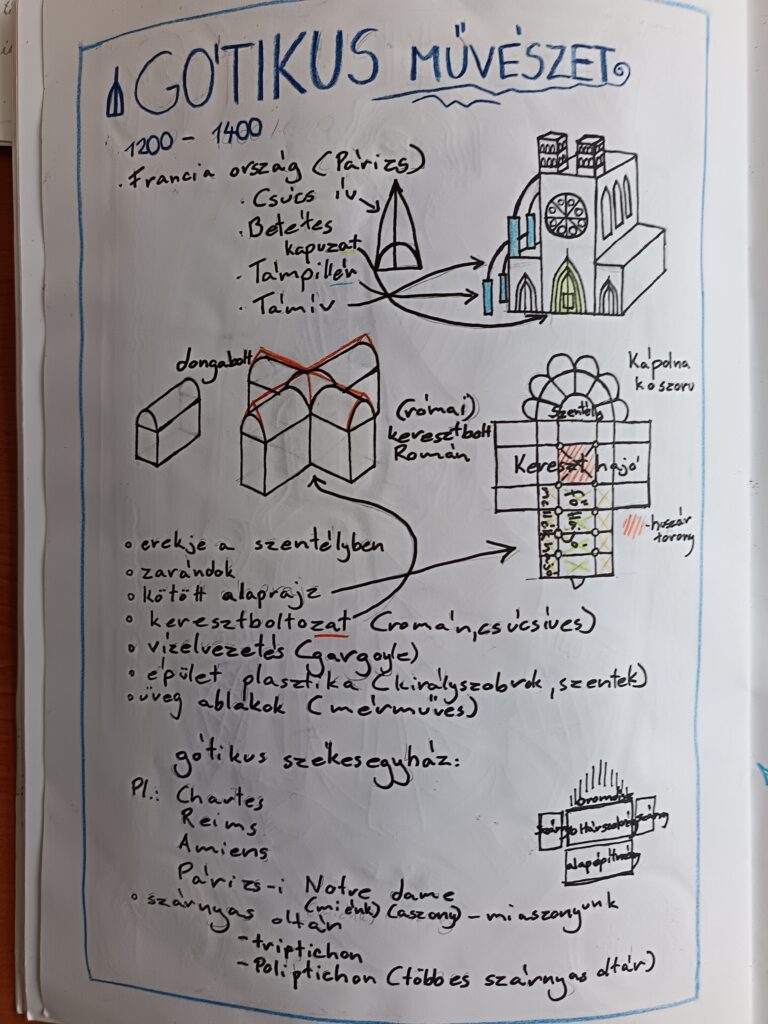 GÓTIKUS MŰVÉSZET
1200 - 1400
. Francia ország (Párizs)
. Csúcs ív
. Betétes
kapuzat
. Támpillér
. Támív
dongabolt
(római)
keresztbolt
Román
Kápolna
koszoru
Szentély
Kereszt hajó
fő
hajó
- huszár
torony
erekje a szentélyben
zarándok
kötött alaprajz
keresztboltozat (román, csúcsíves)
vízelvezetés (gargoyle)
épület plasztika (királyszobrok, szentek)
üveg ablakok (mérműves)
gótikus székesegyház:
Pl.: Chartes
Reims
Amiens
Párizs-i Notre dame
(miénk) (aszony) - miaszonyunk
szárnyas oltár
- triptichon
- Poliptichon (többes szárnyas oltár)
oromdísz
szárny oltárszekrény szárny
alapépítmény